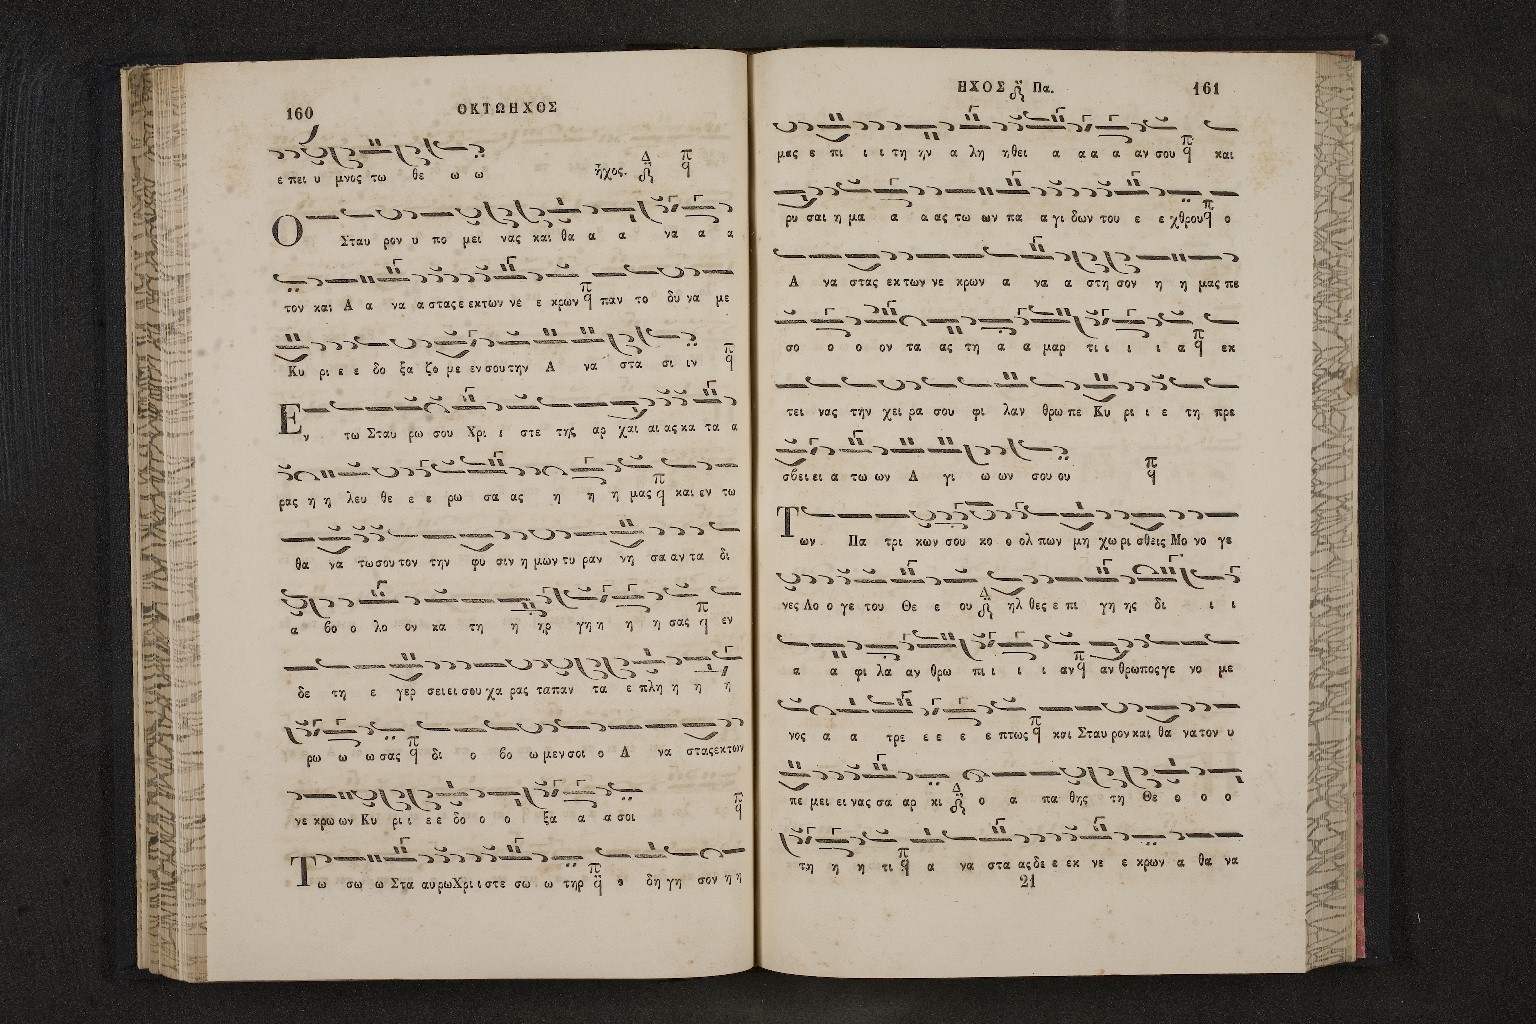 160
ΟΚΤΩΗΧΟΣ
ε πει υ μνος τω θε ω ω ἦχος. Δ π
Ο Σταυ ρον υ πο μει νας και θα α α να α α
τον και Α α να α στας ε εκ των νε ε κρων π παν το δυ να με
Κυ ρι ε ε δο ξα ζο με εν σου την Α να στα σι ιν π
Εν τω Σταυ ρω σου Χρι ι στε της αρ χαι αι ας κα τα α
ρας η η λευ θε ε ε ρω σα ας η η η μας π και εν τω
θα να τω σου τον την φυ σιν η μων τυ ραν νη σα αν τα δι
α βο ο λο ον κα τη η ηρ γη η η η σας π εν
δε τη ε γερ σει ει σου χα ρας τα παν τα ε πλη η η η
ρω ω ω σας π δι ο βο ω μεν σοι ο Α να στας εκ των
νε κρω ων Κυ ρι ι ε ε δο ο ο ξα α α σοι π
Τω σω ω Στα αυ ρω Χρι ι στε σω ω τηρ π ο δη γη σον η η
ΗΧΟΣ Πα.
161
μας ε πι ι ι τη ην α λη ηθει α α α α αν σου π και
ρυ σαι η μα α α ας τω ων πα α γι δων του ε ε χθρου π ο
Α να στας εκ των νε κρων α να α στη σον η η μας πε
σο ο ο ον τα ας τη α α μαρ τι ι ι ι α π εκ
τει νας την χει ρα σου φι λαν θρω πε Κυ ρι ι ε τη πρε
σβει ει α τω ων Α γι ω ων σου ου π
Των Πα τρι κων σου κο ο ολ πων μη χω ρι σθεις Μο νο γε
νες Λο ο γε του Θε ε ου Δ ηλ θες ε πι γη ης δι ι ι
α α φι λα αν θρω πι ι ι ι αν π αν θρωπος γε νο με
νος α α τρε ε ε ε ε πτως π και Σταυ ρον και θα να τον υ
πε μει ει νας σα αρ κι Δ ο α πα θης τη Θε ο ο ο
τη η η τι π α να στα ας δε ε εκ νε ε κρων α θα να
21